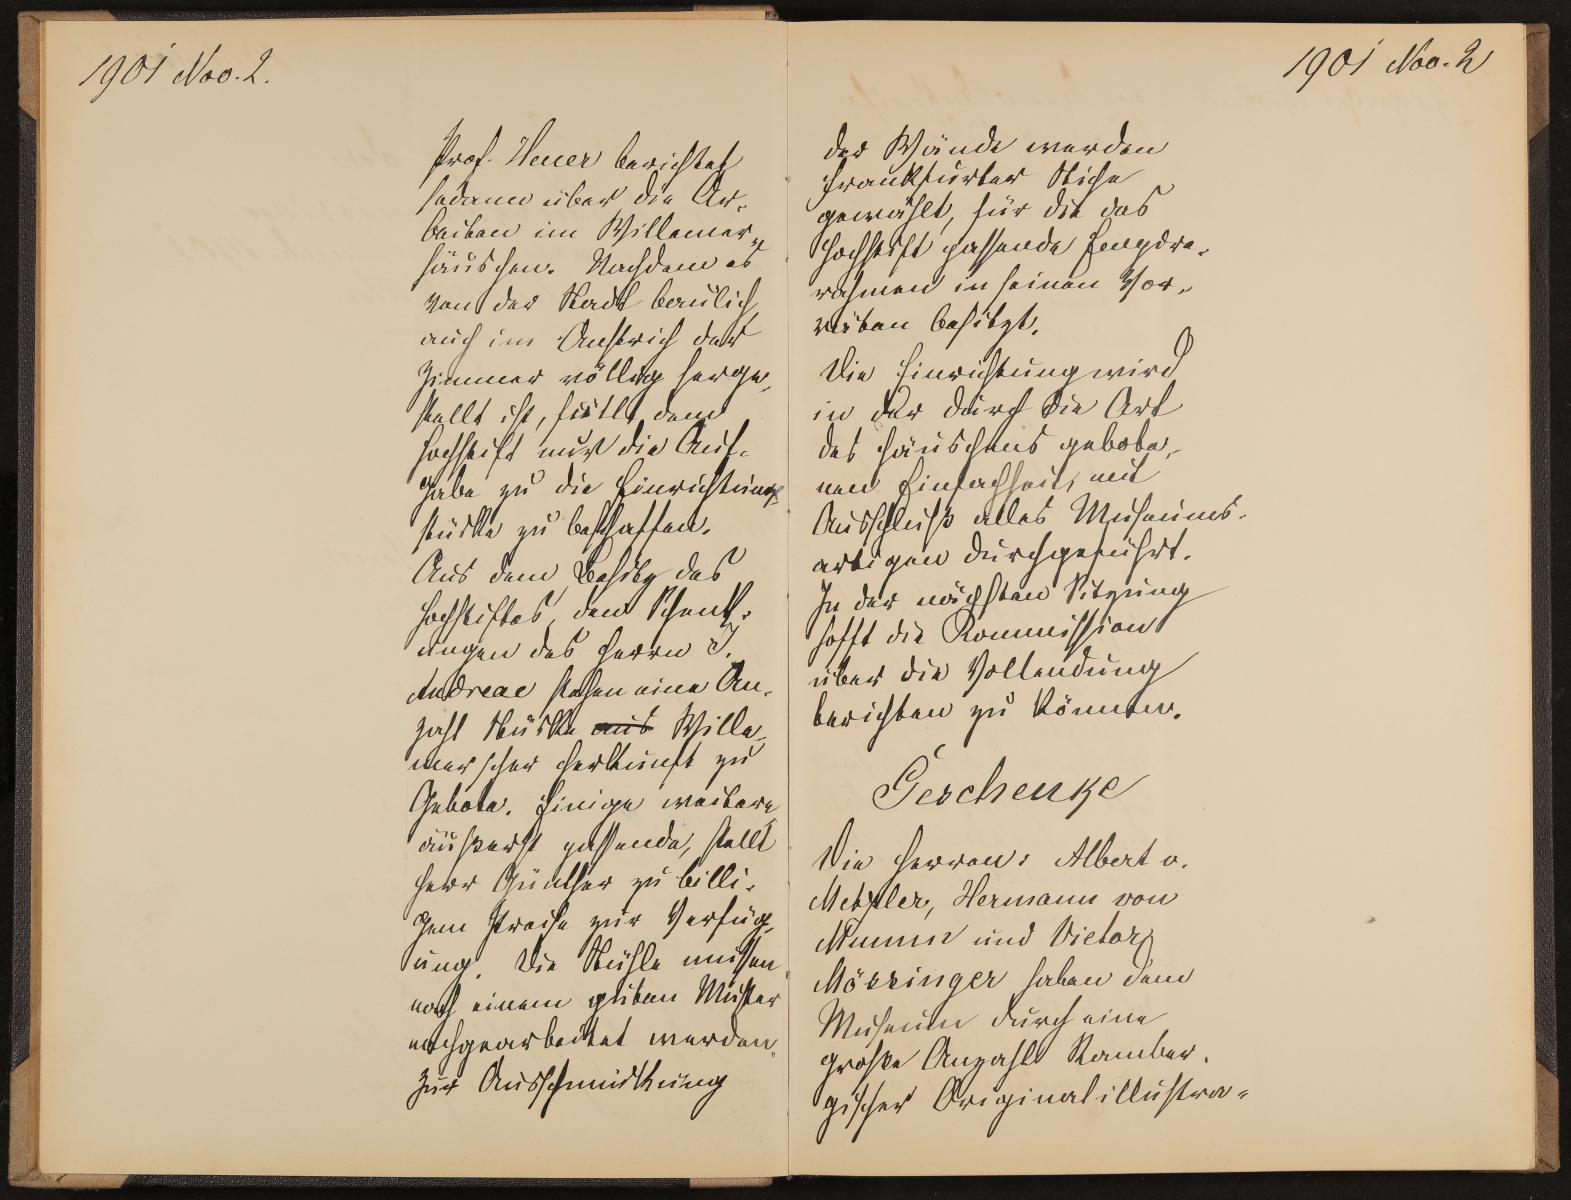 1901 Nov. 2.
Prof. Heuer berichtet
sodann über die Ar-
beiten im Willemer-
häuschen. Nachdem es
von der Stadt baulich,
auch im Anstrich der
Zimmer völlig herge-
stellt ist, fällt dem
Hochstift nur die Auf-
gabe zu die Einrichtungs
stücke zu beschaffen.
Aus dem Besitz des
Hochstiftes, den Schenk-
ungen des Herrn J.
Andreae stehen eine An-
zahl Stücke aus Wille-
merscher Herkunft zu
Gebote. Einige weitere
äußerst passende, stellt
Herr Günther zu billi-
gem Preise zur Verfüg-
ung. Die Stühle müssen
nach einem guten Muster
nachgearbeitet werden.
Zur Ausschmückung
1901 Nov. 2
der Wände werden
Frankfurter Stiche
gewählt, für die das
Hochstift passende Empire-
rahmen in seinen Vor-
räten besitzt.
Die Einrichtung wird
in der durch die Art
des Häuschens gebote-
nen Einfachheit, mit
Ausschluß alles Museums-
artigen durchgeführt.
In der nächsten Sitzung
hofft die Kommission
über die Vollendung
berichten zu können.
Geschenke
Die Herren: Albert v.
Metzler, Hermann von
Mumm und Victor
Mössinger haben dem
Museum durch eine
große Anzahl Ramber-
gischer Originalillustra-